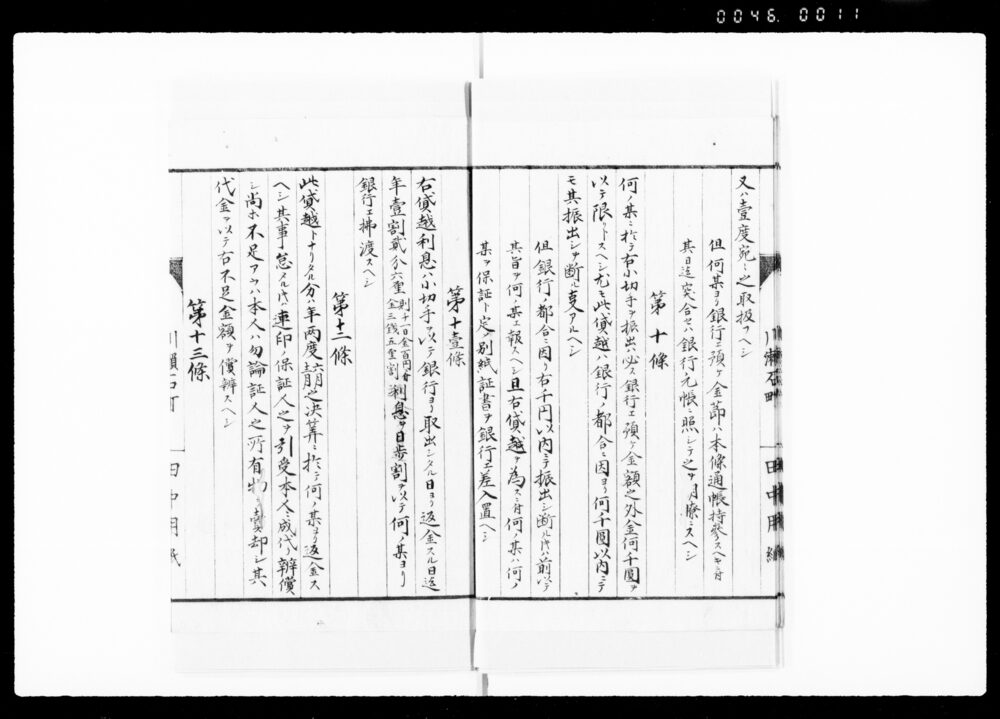 0046. 0011
又ハ壹度宛ニ之取扱フヘシ
但何某ヨリ銀行ヱ預ケ金節ハ本條通帳持參スヘキニ付
其日迄突合セハ銀行元帳ニ照シテ之ヲ月賬ニスヘシ
第十條
何ノ某ニ於テ右小切手ヲ振出ハ必ス銀行ヱ預ケ金額之外金何千圓ヲ
以テ限リトスヘシ尤モ此貸越ハ銀行ノ都合ニ因ヨリ何千圓以内ニテ
モ其振出シヲ断ル亊アルヘシ
但銀行ノ都合ニ因リ右千円以内ニテ振出シ断ル片ハ前以テ
其旨ヲ何ノ某ヱ報スヘシ且右貸越ヲ為スニ付何ノ某ハ何ノ
某ヲ保証ト定メ別紙証書ヲ銀行ヱ差入置ヘシ
第十壹條
右貸越利息ハ小切手ヲ以テ銀行ヨリ取出シタル日ヨリ返金スル日迄
年壹割貳分六厘則十一日金百円ニ付金三銭五厘割利息ヲ日歩割ヲ以テ何ノ某ヨリ
銀行ヱ拂渡スヘシ
第十二條
此貸越トナリタル分ハ年両度六ヶ月之決算ニ於テ何ノ某ヨリ返金ス
ヘシ其事怠タル片ハ連印ノ保証人之ヲ引受本人ニ成代リ辨償
シ尚ホ不足アラハ本人ハ勿論証人之所有物ヲ賣却シ其
代金ヲ以テ右不足金額ヲ償辨スヘシ
第十三條
田中用紙